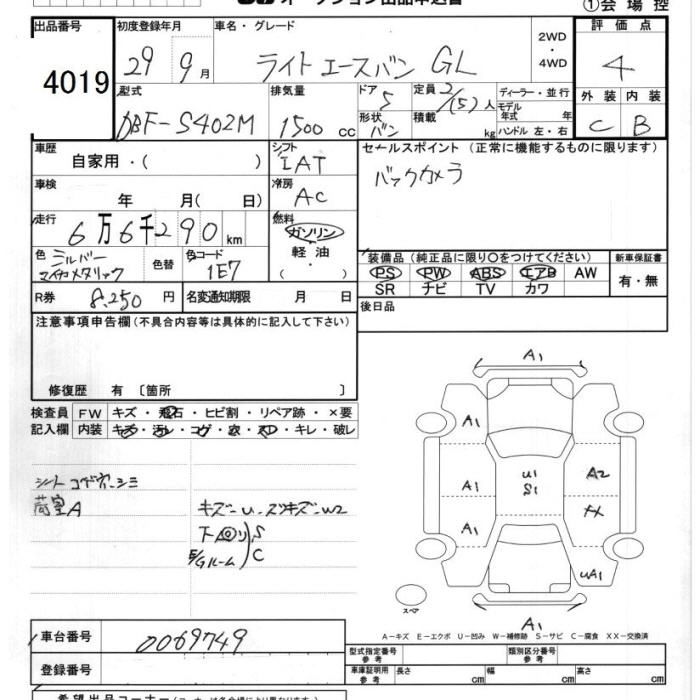 ①会場控
出品番号 初度登録年月 車名・グレード 2WD・4WD 評価点
4019 29 9月 ライトエースバン GL 4
型式 DBF-S402M 排気量 1500 cc ドア 5 定員 2/(5)人 ディーラー・並行 外装 内装
形状 バン 積載 kg モデル年式 年 ハンドル 左・右 C B
車歴 自家用・( ) シフト IAT セールスポイント (正常に機能するものに限ります)
車検 年 月( 日) 冷房 AC バックカメラ
走行 6万6千290 km 燃料 ガソリン・軽油・
色 シルバーマイカメタリック 色替 色コード 1E7
装備品 (純正品に限り○をつけてください) 新車保証書
PS PW ABS エアB AW 有・無
SR ナビ TV カワ
R券 8,250 円 名変通知期限 月 日 後日品
注意事項申告欄 (不具合内容等は具体的に記入して下さい)
修復歴 有 〔箇所 〕
検査員 FW キズ・飛石・ヒビ割・リペア跡・×要
記入欄 内装 キズ・汚レ・コゲ・穴・スレ・キレ・破レ
荷室A
キズ〜U
下回り S
E/Gルーム C
A1
A1
U1
S1
A2
A1
A1
UA1
A1
スペア
A−キズ E−エクボ U−凹み W−補修跡 S−サビ C−腐食 XX−交換済
車台番号 0069749
登録番号
型式指定番号 参考 類別区分番号 参考
車庫証明用 参考 長さ cm 幅 cm 高さ cm